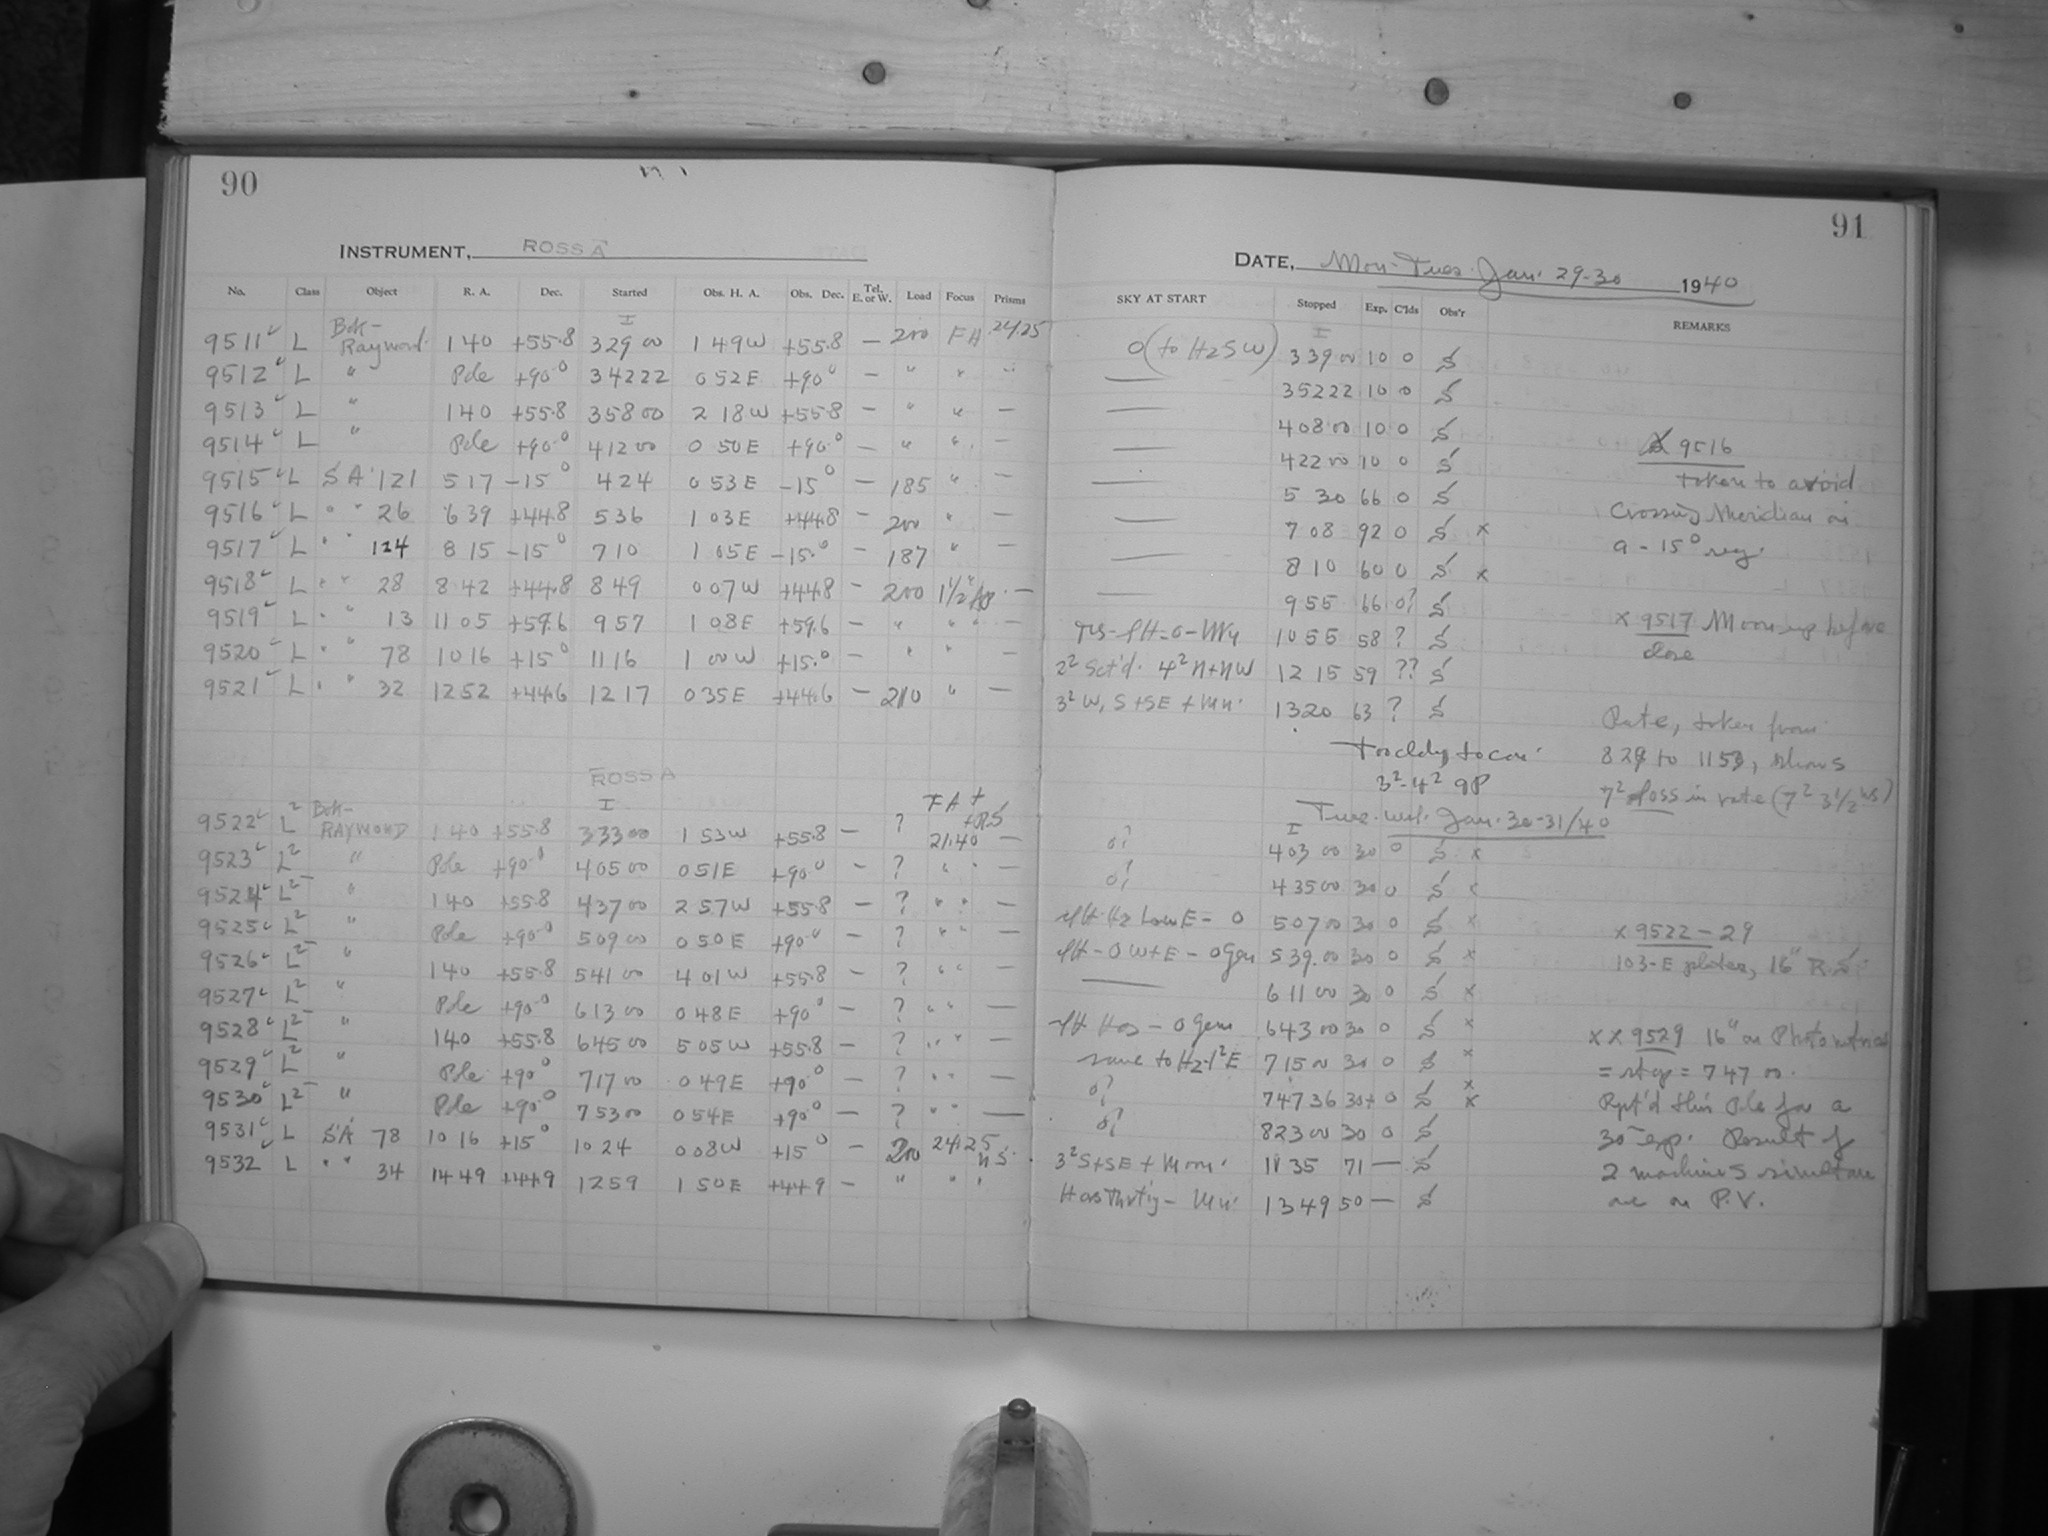 90
INSTRUMENT, ROSS A
No. Class Object R. A. Dec. Started Obs. H. A. Obs. Dec. Tel. E. or W. Load Focus Prisms
I
9511 L Bok-Raymond 1 40 +55.8 3 29 00 1 49 W +55.8 — 200 FA 24.25
9512 L " Pole +90.0 3 42 22 0 52 E +90.0 — " " "
9513 L " 1 40 +55.8 3 58 00 2 18 W +55.8 — " " —
9514 L " Pole +90.0 4 12 00 0 50 E +90.0 — " " —
9515 L S A 121 5 17 -15 0 4 24 0 53 E -15 0 — 185 " —
9516 L " " 26 6 39 +44.8 5 36 1 03 E +44.8 — 200 " —
9517 L " " 124 8 15 -15 0 7 10 1 05 E -15.0 — 187 " —
9518 L " " 28 8 42 +44.8 8 49 0 07 W +44.8 — 200 1 1/2 —
9519 L " " 13 11 05 +59.6 9 57 1 08 E +59.6 — " " " —
9520 L " " 78 10 16 +15 0 11 16 1 00 W +15.0 — " " —
9521 L " " 32 12 52 +44.6 12 17 0 35 E +44.6 — 210 " —
ROSS A
I
FA +
9522 L2 Bok-RAYMOND 1 40 +55.8 3 33 00 1 53 W +55.8 — ? 21.40 —
9523 L2 " Pole +90.0 4 05 00 0 51 E +90.0 — ? " " —
9524 L2 " 1 40 +55.8 4 37 00 2 57 W +55.8 — ? " " —
9525 L2 " Pole +90.0 5 09 00 0 50 E +90.0 — ? " " —
9526 L2 " 1 40 +55.8 5 41 00 4 01 W +55.8 — ? " " —
9527 L2 " Pole +90.0 6 13 00 0 48 E +90.0 — ? " " —
9528 L2 " 1 40 +55.8 6 45 00 5 05 W +55.8 — ? " " —
9529 L2 " Pole +90.0 7 17 00 0 49 E +90.0 — ? " " —
9530 L2 " Pole +90.0 7 53 00 0 54 E +90.0 — ? " " —
9531 L SA 78 10 16 +15 0 10 24 0 08 W +15 0 — 200 24.25
9532 L " " 34 14 49 +44.9 12 59 1 50 E +44.9 — " " "
91
DATE, Mon-Tues. Jan. 29-30 1940
SKY AT START Stopped Exp. C'lds Obs'r REMARKS
I
0 (to H2 SW) 3 39 00 10 0 S
— 3 52 22 10 0 S
— 4 08 00 10 0 S
— 4 22 00 10 0 S
— 5 30 66 0 S
— 7 08 92 0 S x
— 8 10 60 0 S x
— 9 55 66 0? S
10 55 58 ? S
2² Sct'd. 4² N+NW 12 15 59 ?? S
3² W, S+SE + Mn. 13 20 63 ? S
Too cldy to con.
3²-4² gP
x 9516
taken to avoid
Crossing Meridian on
a -15° reg.
x 9517 Moon up before
close
Rate, taken from
to 1153, shows
7² loss in rate (7² 3 1/2 hrs)
Tues. Wed. Jan. 30-31/40
I
0? 4 03 00 30 0 S x
0? 4 35 00 30 0 S x
H2 Low E - 0 5 07 00 30 0 S x
0 W+E - 0 Gen 5 39.00 30 0 S x
— 6 11 00 30 0 S x
Has - 0 Gen 6 43 00 30 0 S x
same to H2-1² E 7 15 00 30 0 S x
0? 7 47 36 30+ 0 S x x
0? 8 23 00 30 0 S
3² S+SE + Moon. 11 35 71 — S
Mn. 13 49 50 — S
x 9522-29
103-E plates, 16" R.S.
x x 9529 16" on Photometrics
= stop = 7 47 00.
Rpt'd this Pole for a
30 exp. Result of
2 machines simultan
on P.V.